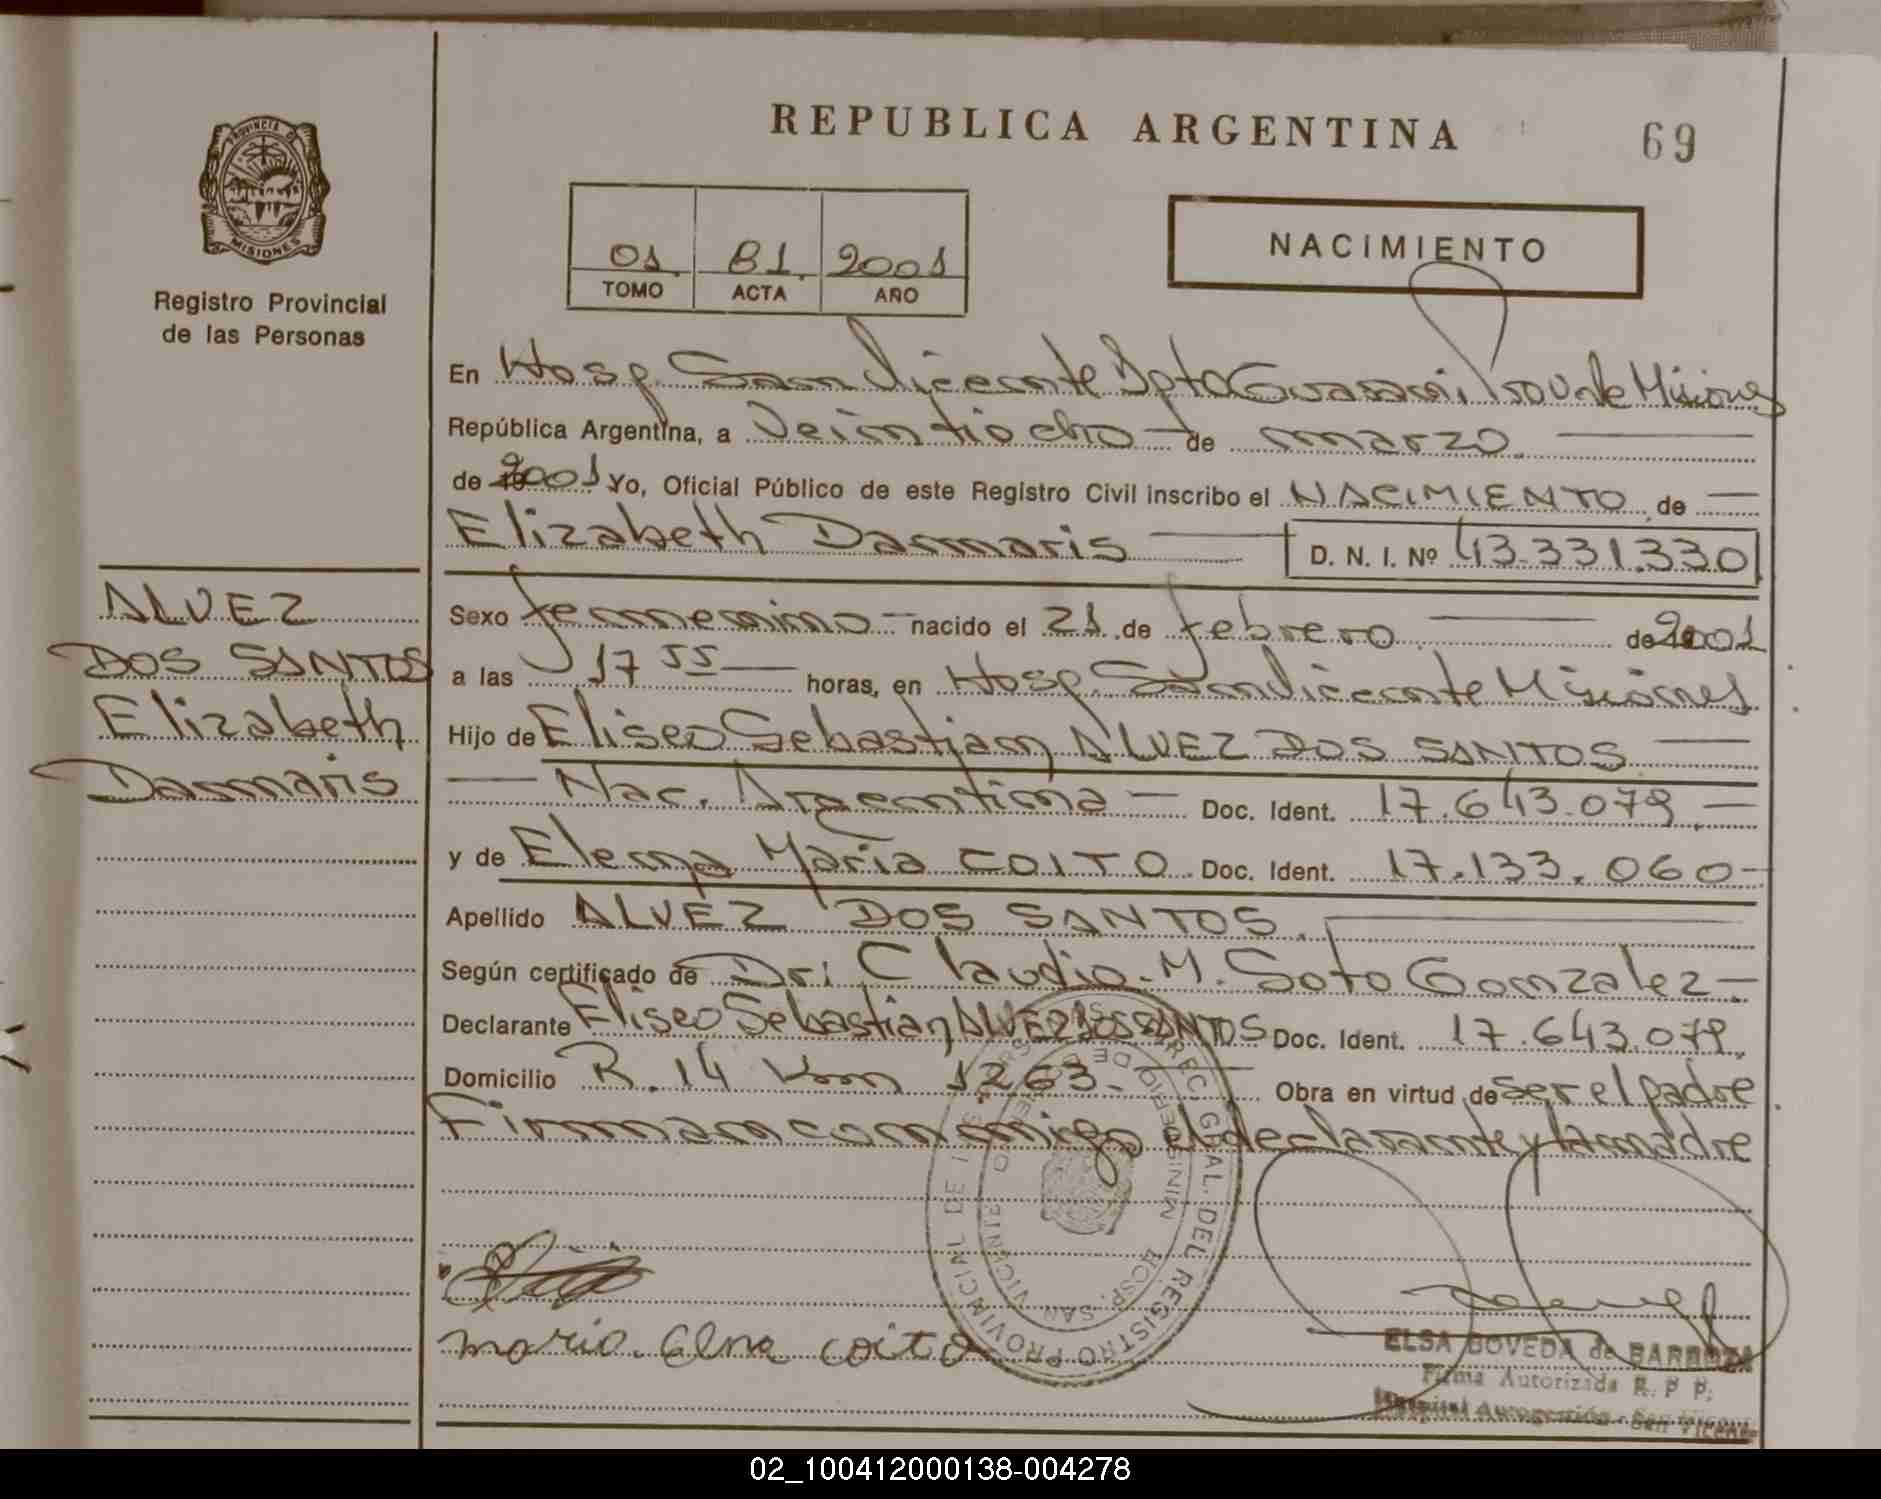 REPUBLICA ARGENTINA
69
PROVINCIA DE
MISIONES
Registro Provincial
de las Personas
01 81 2001
TOMO ACTA AÑO
NACIMIENTO
En Hosp. San Vicente Dpto Guarani, Prov de Misiones
República Argentina, a Veintiocho de marzo
de 2001 Yo, Oficial Público de este Registro Civil inscribo el NACIMIENTO de
Elizabeth Dammaris D. N. I. Nº 43.331.330
ALVEZ
DOS SANTOS
Elizabeth
Dammaris
Sexo femenino nacido el 21 de febrero de 2001
a las 17 55 horas, en Hosp. San Vicente Misiones
Hijo de Eliseo Sebastian ALVEZ DOS SANTOS
Nac. Argentina Doc. Ident. 17.643.079
y de Elena María COITO Doc. Ident. 17.133.060
Apellido ALVEZ DOS SANTOS
Según certificado de Dr: Claudio M. Soto Gonzalez
Declarante Eliseo Sebastián ALVEZ DOS SANTOS Doc. Ident. 17.643.079
Domicilio R. 14 Km 1263 Obra en virtud de ser el padre
Firman conmigo el declarante y la madre
maria Elna coito
HOSP. SAN VICENTE
ELSA BOVEDA de BARBOZA
Firma Autorizada R. P P.
Hospital Autogestión - San Vicente
02_100412000138-004278